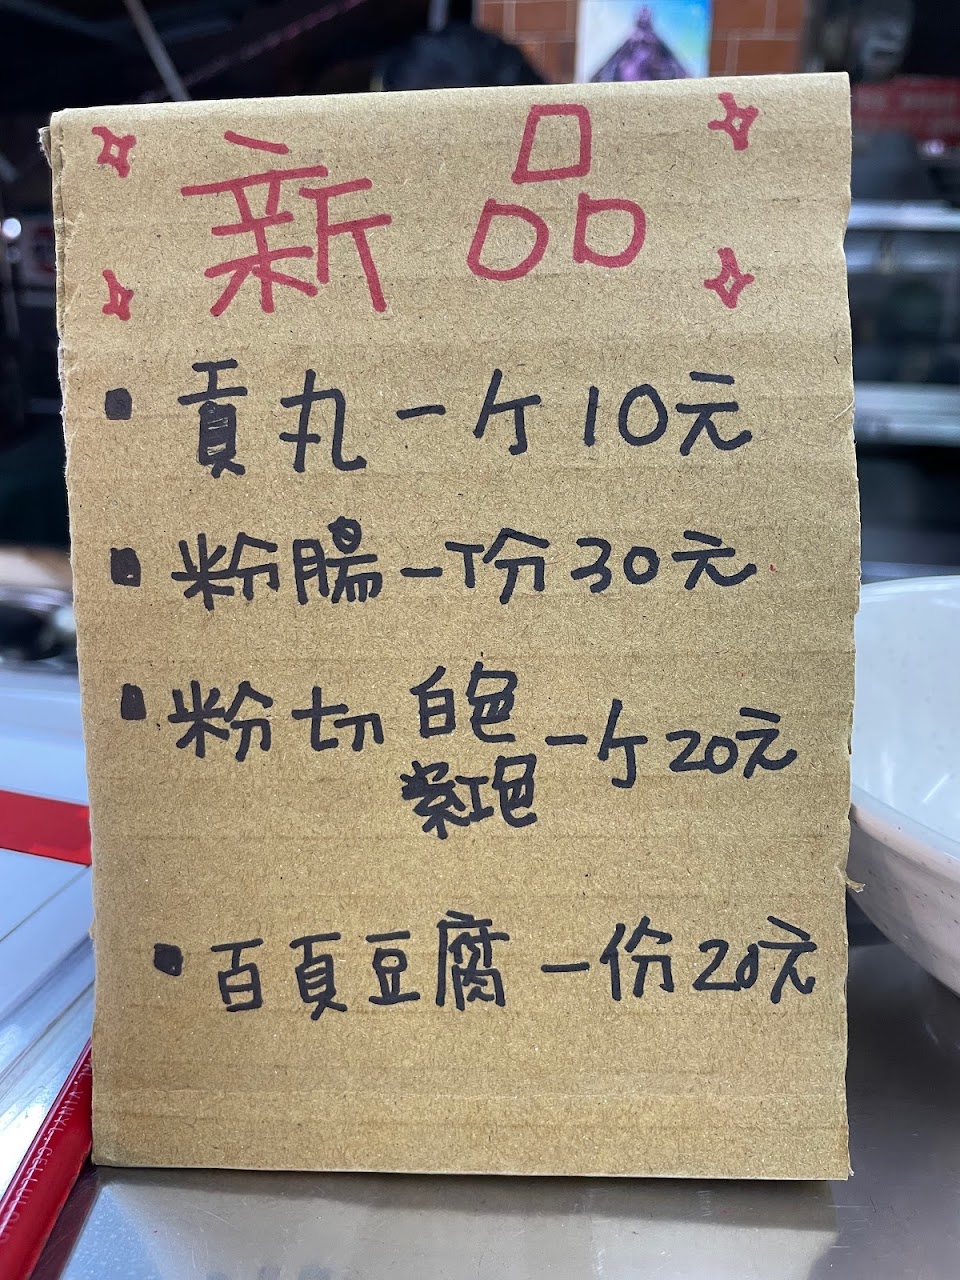 新品
貢丸一ケ10元
粉腸一份30元
粉切 白色 一ケ20元
紫紅色
百頁豆腐一份20元